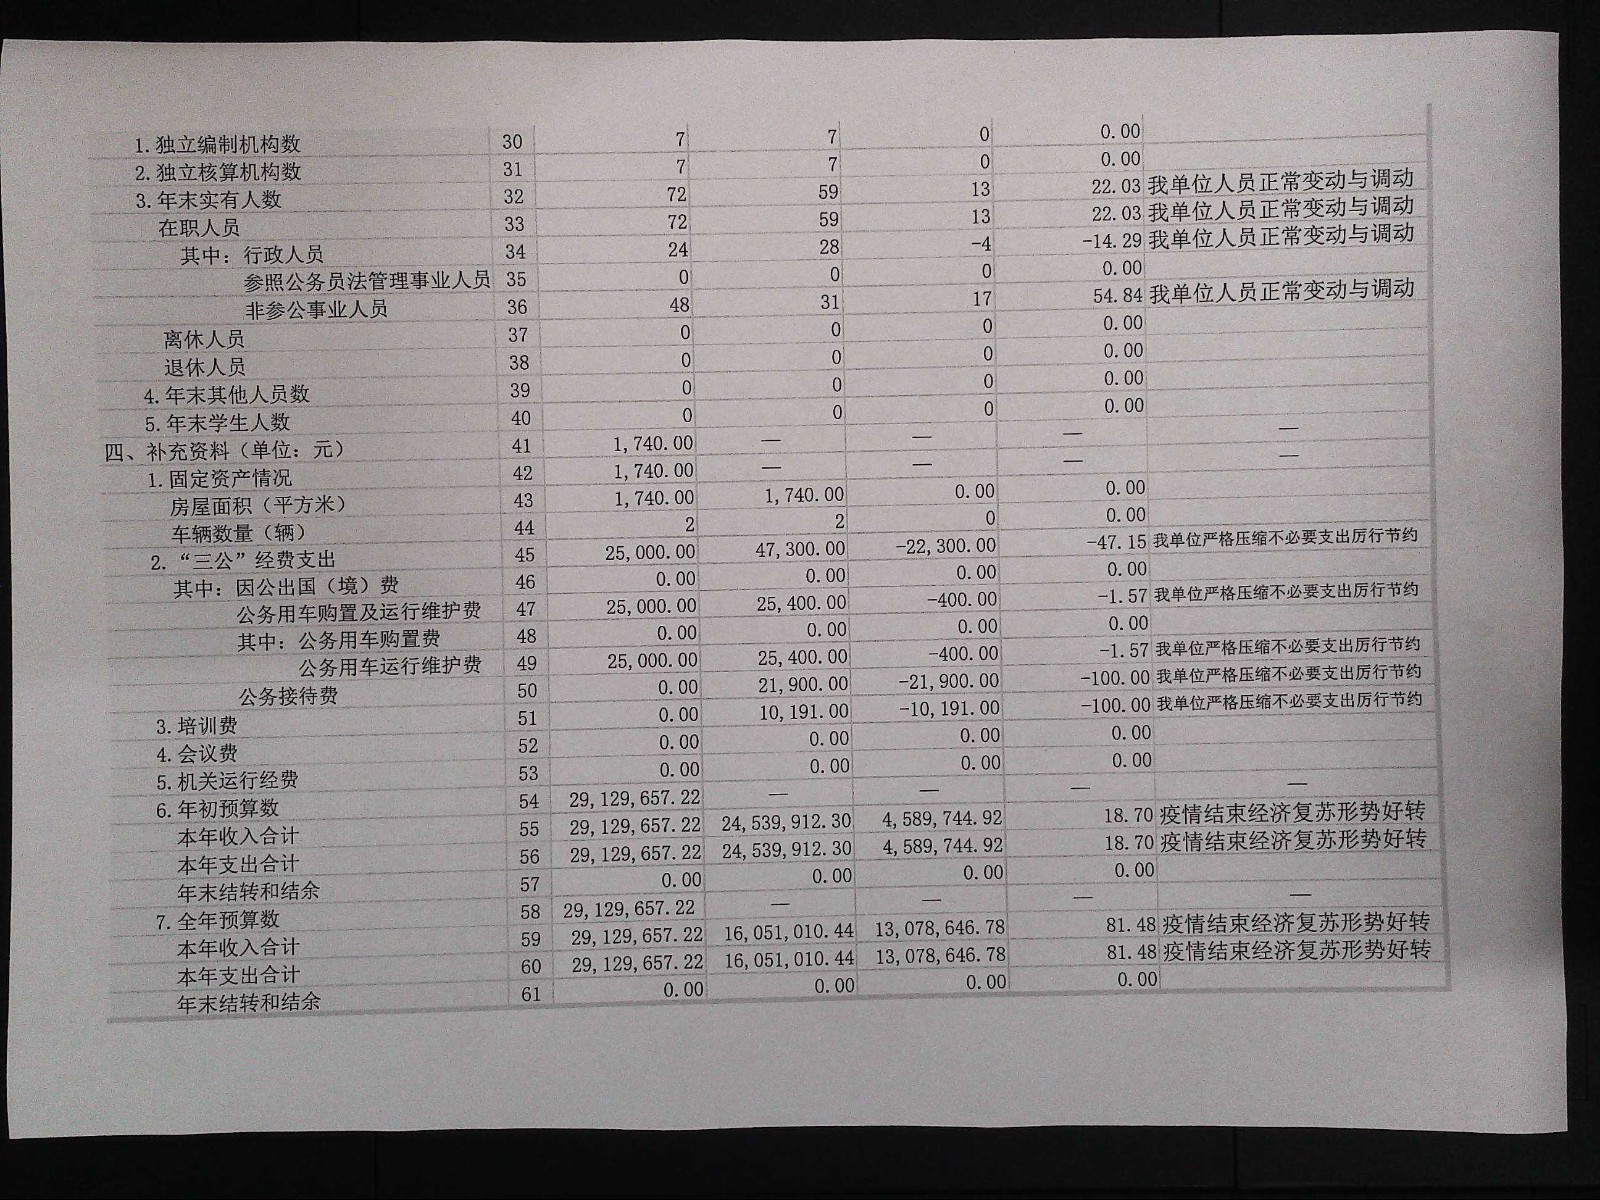 1.独立编制机构数 30 7 7 0 0.00
2.独立核算机构数 31 7 7 0 0.00
3.年末实有人数 32 72 59 13 22.03 我单位人员正常变动与调动
在职人员 33 72 59 13 22.03 我单位人员正常变动与调动
其中：行政人员 34 24 28 -4 -14.29 我单位人员正常变动与调动
参照公务员法管理事业人员 35 0 0 0 0.00
非参公事业人员 36 48 31 17 54.84 我单位人员正常变动与调动
离休人员 37 0 0 0 0.00
退休人员 38 0 0 0 0.00
4.年末其他人员数 39 0 0 0 0.00
5.年末学生人数 40 0 0 0 0.00
四、补充资料（单位：元） 41 1,740.00 — — — —
1.固定资产情况 42 1,740.00 — — — —
房屋面积（平方米） 43 1,740.00 1,740.00 0.00 0.00
车辆数量（辆） 44 2 2 0 0.00
2.“三公”经费支出 45 25,000.00 47,300.00 -22,300.00 -47.15 我单位严格压缩不必要支出厉行节约
其中：因公出国（境）费 46 0.00 0.00 0.00 0.00
公务用车购置及运行维护费 47 25,000.00 25,400.00 -400.00 -1.57 我单位严格压缩不必要支出厉行节约
其中：公务用车购置费 48 0.00 0.00 0.00 0.00
公务用车运行维护费 49 25,000.00 25,400.00 -400.00 -1.57 我单位严格压缩不必要支出厉行节约
公务接待费 50 0.00 21,900.00 -21,900.00 -100.00 我单位严格压缩不必要支出厉行节约
3.培训费 51 0.00 10,191.00 -10,191.00 -100.00 我单位严格压缩不必要支出厉行节约
4.会议费 52 0.00 0.00 0.00 0.00
5.机关运行经费 53 0.00 0.00 0.00 0.00
6.年初预算数 54 29,129,657.22 — — — —
本年收入合计 55 29,129,657.22 24,539,912.30 4,589,744.92 18.70 疫情结束经济复苏形势好转
本年支出合计 56 29,129,657.22 24,539,912.30 4,589,744.92 18.70 疫情结束经济复苏形势好转
年末结转和结余 57 0.00 0.00 0.00 0.00
7.全年预算数 58 29,129,657.22 — — — —
本年收入合计 59 29,129,657.22 16,051,010.44 13,078,646.78 81.48 疫情结束经济复苏形势好转
本年支出合计 60 29,129,657.22 16,051,010.44 13,078,646.78 81.48 疫情结束经济复苏形势好转
年末结转和结余 61 0.00 0.00 0.00 0.00